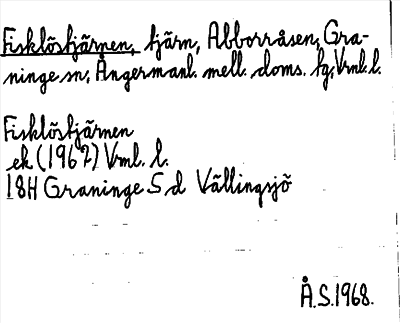 Fisklöstjärnen, tjärn, Abborråsen, Gra-
ninge sn, Ångermanl. mell. doms. hg, Vrnl. l.
Fisklöstjärnen
ek (1967) Vrml. l.
18H Graninge S d Vällingsjö
Å.S. 1968.